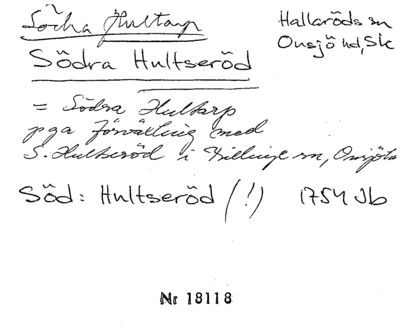 Södra Hultarp
Hallaröds sn
Onsjö hd, Sk
Södra Hultseröd
= Södra Hultarp
pga förväxling med
S. Hultseröd i sn, Onsjö
Söd: Hultseröd (!) 1754 Jb
Nr 18118